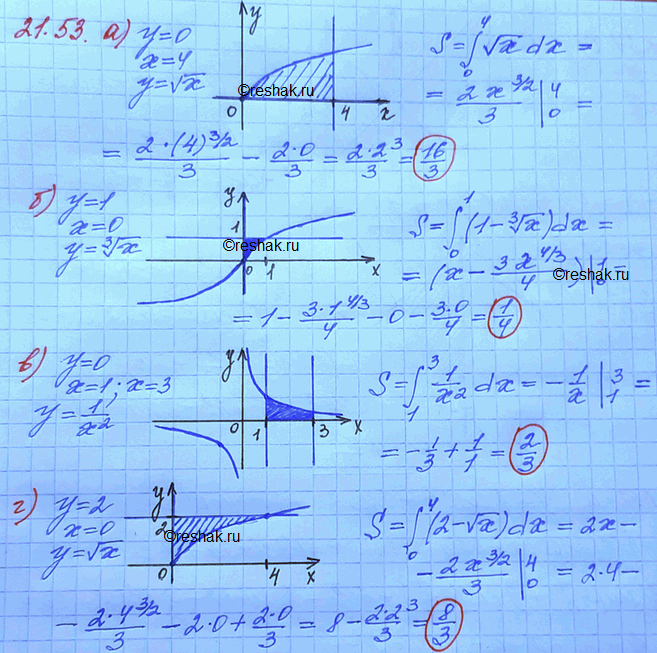 21.53. а) y=0
x=4
y=√x
y
0
4
x
©reshak.ru
S=∫₀⁴√x dx =
= 2x^(3/2)/3 |₀⁴ =
= 2·(4)^(3/2)/3 - 2·0/3 = 2·2³/3 = 16/3
б) y=1
x=0
y=∛x
y
1
0
1
x
©reshak.ru
S=∫₀¹(1-∛x)dx =
= (x - 3x^(4/3)/4)|₀¹ =
©reshak.ru
= 1 - 3·1^(4/3)/4 - 0 - 3·0/4 = 1/4
в) y=0
x=1; x=3
y=1/x²
y
0
1
3
x
S=∫₁³ 1/x² dx = -1/x |₁³ =
= -1/3 + 1/1 = 2/3
г) y=2
x=0
y=√x
y
2
0
4
x
©reshak.ru
S=∫₀⁴(2-√x)dx = 2x -
- 2x^(3/2)/3 |₀⁴ = 2·4 -
- 2·4^(3/2)/3 - 2·0 + 2·0/3 = 8 - 2·2³/3 = 8/3